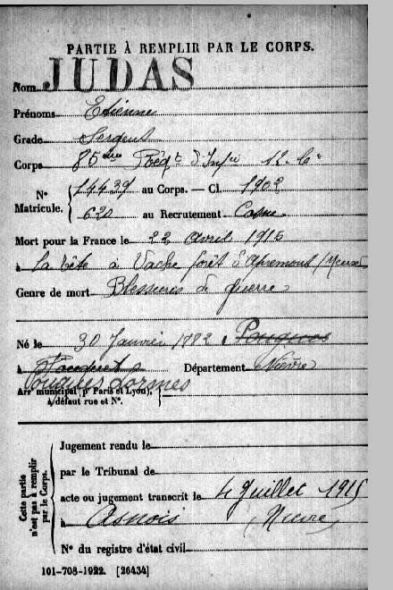 PARTIE À REMPLIR PAR LE CORPS.
Nom JUDAS
Prénoms Etienne
Grade Sergent
Corps 85ème Régt d'Infie 12. Cie
N° Matricule. 14439 au Corps. — Cl. 1902
620 au Recrutement Cosne
Mort pour la France le 22 avril 1915
à La tête à Vache forêt d'Apremont (Meuse)
Genre de mort Blessures de guerre
Né le 30 Janvier 1882 à
à Département Nièvre
Arrt municipal (pr Paris et Lyon), à défaut rue et N°.
Cette partie n'est pas à remplir par le Corps.
Jugement rendu le
par le Tribunal de
acte ou jugement transcrit le 4 Juillet 1915
à Asnois Nièvre
N° du registre d'état civil
101-708-1922. [26434]